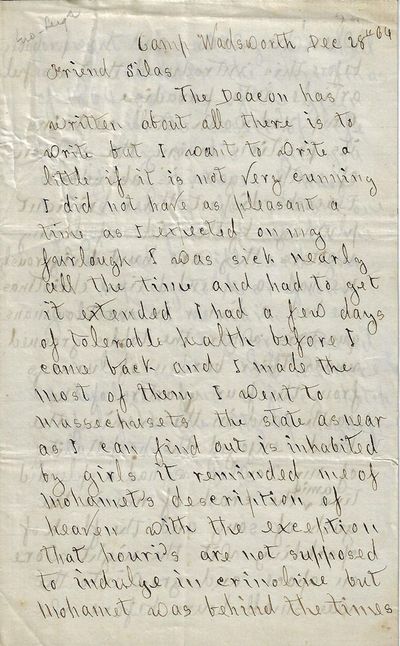 Camp Wadsworth Dec 28th 64
Friend Silas
The Deacon has
written about all there is to
write but I want to write a
little if it is not very cunning
I did not have as pleasant a
time as I expected on my
furlough I was sick nearly
all the time and had to get
it extended I had a few days
of tolerable health before I
came back and I made the
most of them I went to
Massachusets the state as near
as I can find out is inhabited
by girls it reminded me of
Mohamet's description of
heaven with the exception
that houris are not supposed
to indulge in crinoline but
Mohamet was behind the times